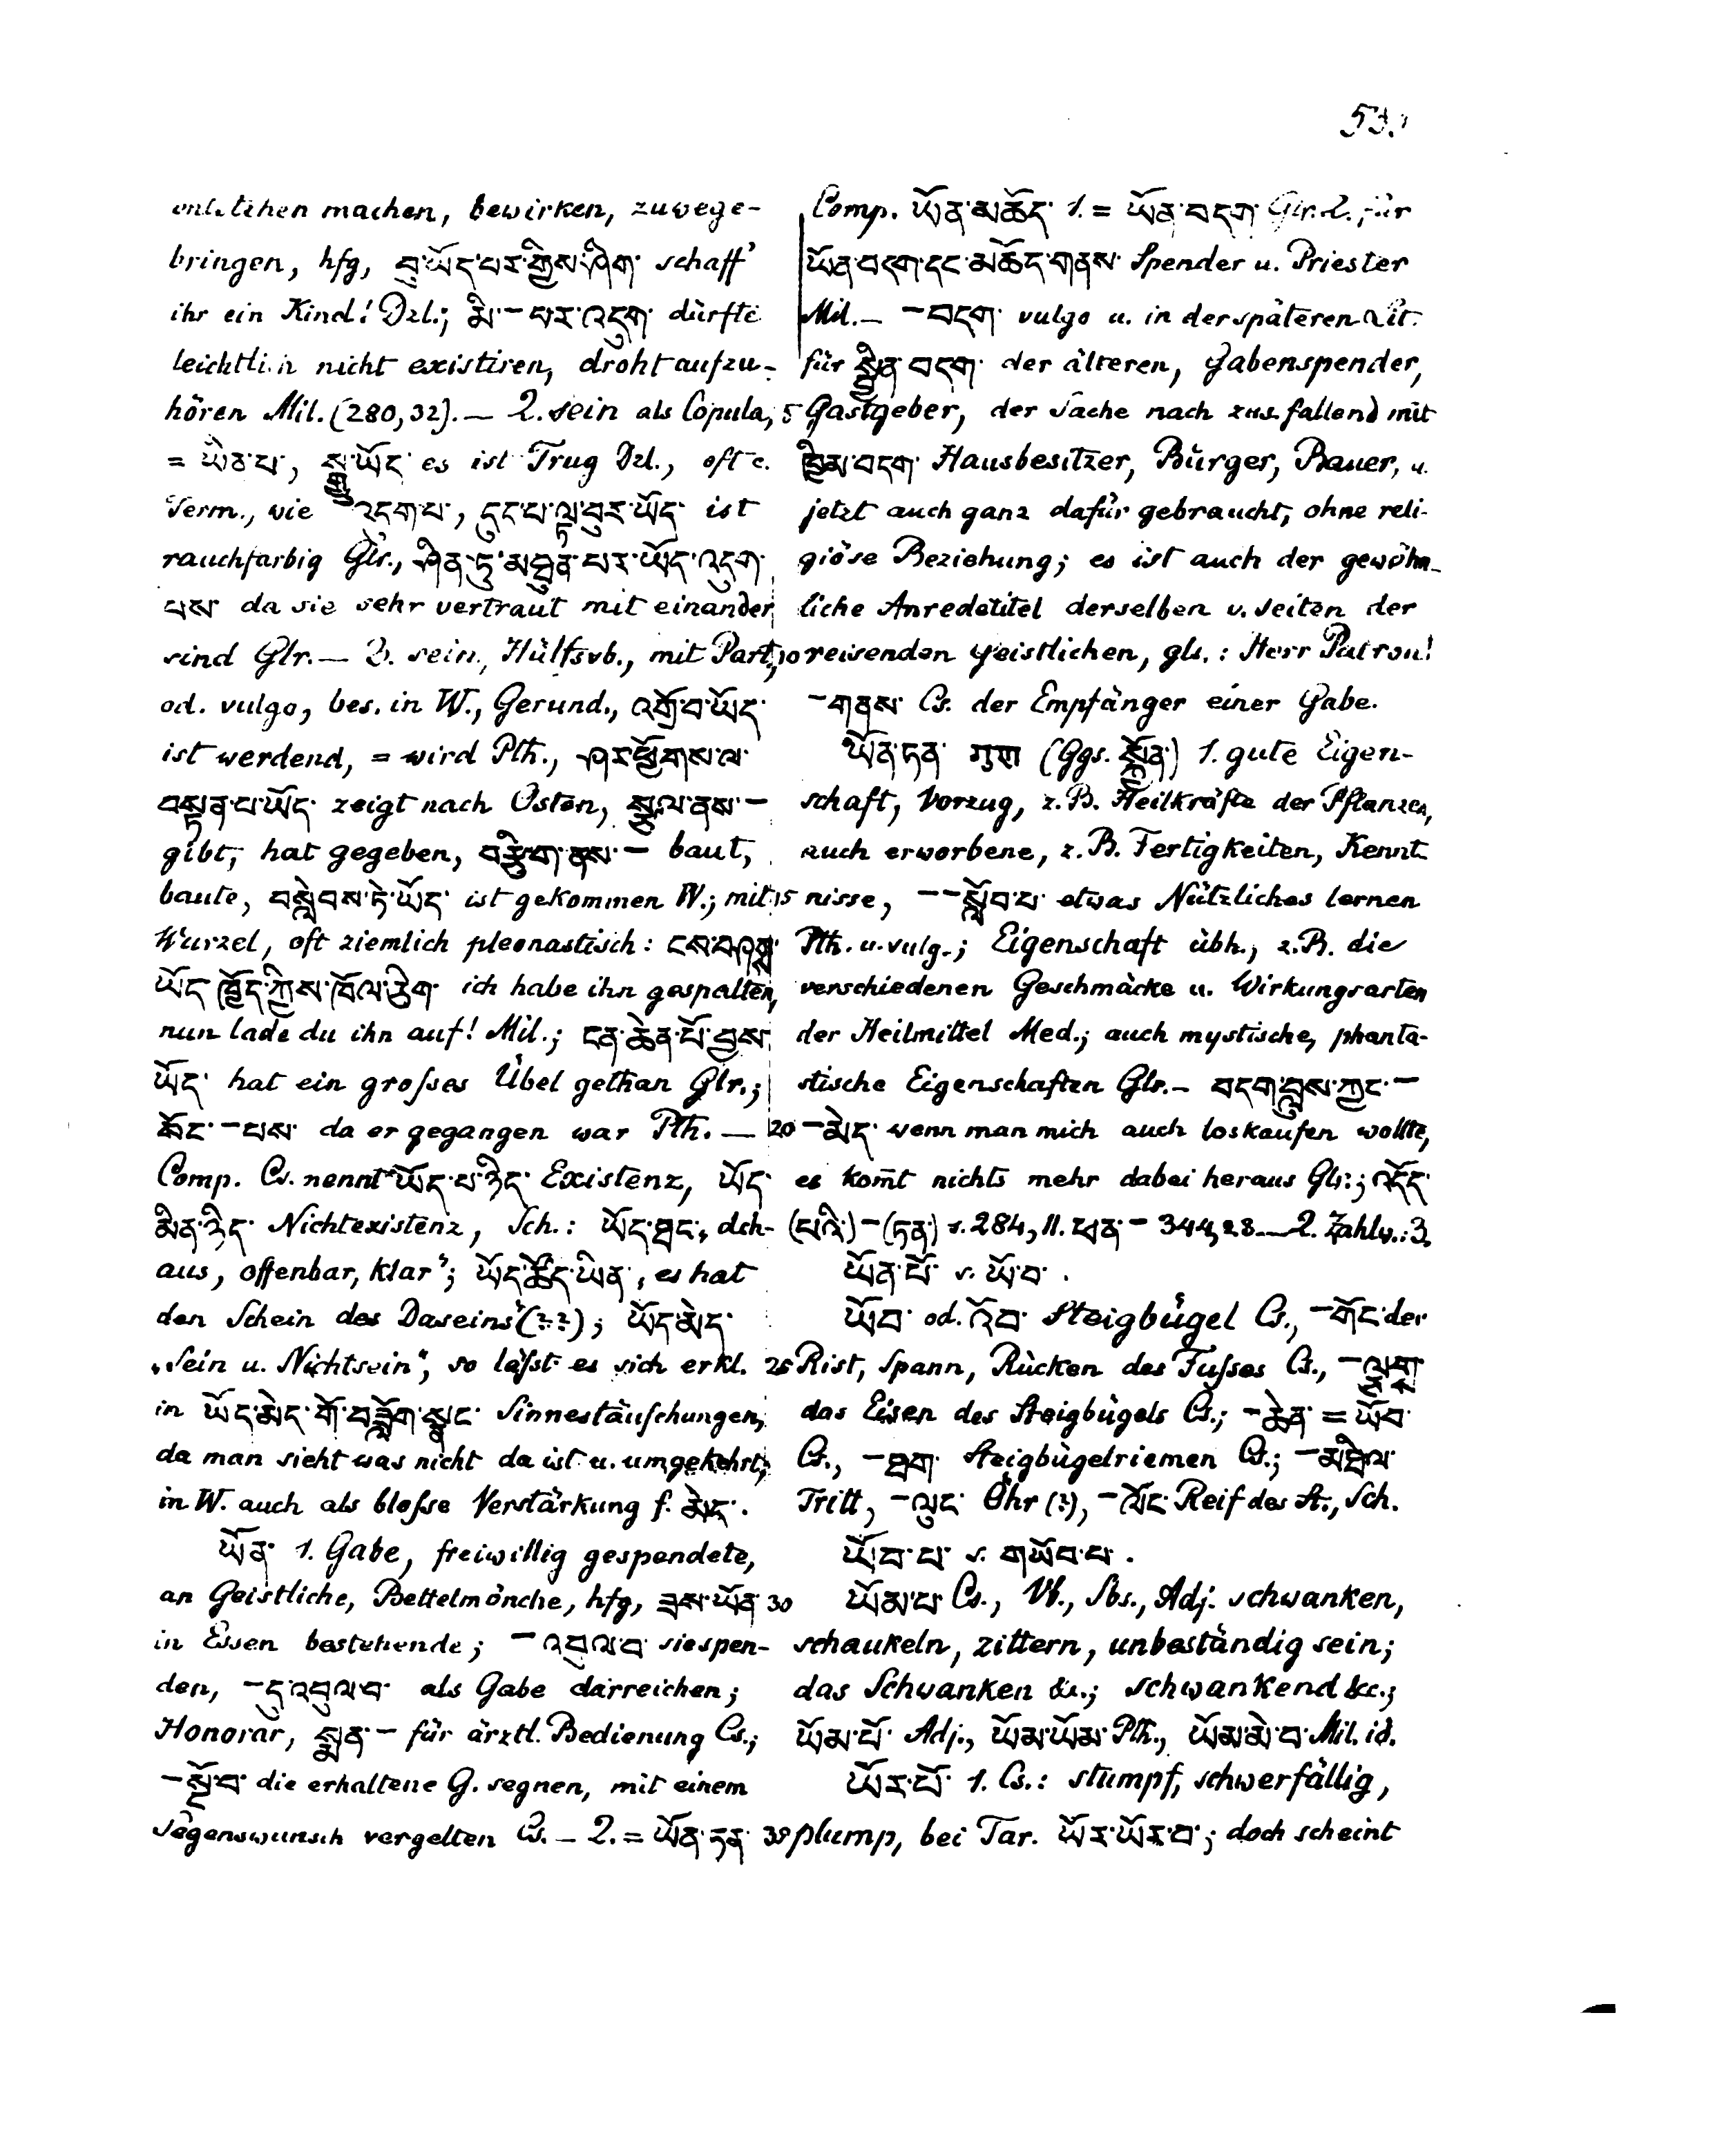 entstehen machen, bewirken, zuwege-
bringen, hfg, བུ་ཡོད་པར་གྱིས་ཤིག་ schaff'
ihr ein Kind! Dzl.; མི་ – པར་འདུག་ dürfte
leichtlich nicht existiren, droht aufzu-
hören Mil. (280,32). – 2. sein als Copula,
= ཡིན་པ་, སྒྱུ་ཡོད་ es ist Trug Dzl., oft c.
Term., wie འདུག་པ་, དུད་པ་ལྟ་བུར་ཡོད་ ist
rauchfarbig Glr., ཤིན་ཏུ་མཐུན་པར་ཡོད་འདུག་
པས་ da sie sehr vertraut mit einander
sind Glr. – 3. sein, Hülfsvb., mit Part.,
od. vulgo, bes. in W., Gerund., འགྲོ་བ་ཡོད་
ist werdend, = wird Pth., ཤར་ཕྱོགས་ལ་
བསྟན་པ་ཡོད་ zeigt nach Osten, སྩལ་ནས་ –
gibt, hat gegeben, བརྩིག་ནས་ – baut,
baute, བསླེབས་ཏེ་ཡོད་ ist gekommen W.; mit
Wurzel, oft ziemlich pleonastisch: ངས་བཤགས་
ཡོད་ ཁྱོད་ཀྱིས་ཁོལ་ཅིག་ ich habe ihn gespalten,
nun lade du ihn auf! Mil.; ངན་ཆེན་པོ་བྱས་
ཡོད་ hat ein großes Übel gethan Glr.;
སོང་ – པས་ da er gegangen war Pth. –
Comp. Cs. nennt ཡོད་པ་ཉིད་ Existenz, ཡོད་
མིན་ཉིད་ Nichtexistenz, Sch.: ཡོད་ཐང་, dch-
aus, offenbar, klar'; ཡོད་ཚོད་ཡིན་, es hat
den Schein des Daseins' (??); ཡོད་མེད་
„Sein u. Nichtsein“, so läßt es sich erkl.
in ཡོད་མེད་གོ་བཟློག་སྣང་ Sinnestäuschungen,
da man sieht was nicht da ist u. umgekehrt;
in W. auch als bloße Verstärkung f. མེད་.
ཡོན་ 1. Gabe, freiwillig gespendete,
an Geistliche, Bettelmönche, hfg, ཟས་ཡོན་
in Essen bestehende; – འབུལ་བ་ sie spen-
den, – དུ་འབུལ་བ་ als Gabe darreichen;
Honorar, སྨན་ – für ärztl. Bedienung Cs.;
– སྔོ་བ་ die erhaltene G. segnen, mit einem
Segenswunsch vergelten Cs. – 2. = ཡོན་ཏན་
Comp. ཡོན་མཆོད་ 1. = ཡོན་བདག་ Glr. 2. für
ཡོན་བདག་དང་མཆོད་གནས་ Spender u. Priester
Mil. – – བདག་ vulgo u. in der späteren Lit.
für སྦྱིན་བདག་ der älteren, Gabenspender,
5 Gastgeber, der Sache nach zus. fallend mit
ཁྱིམ་བདག་ Hausbesitzer, Bürger, Bauer, u.
jetzt auch ganz dafür gebraucht, ohne reli-
giöse Beziehung; es ist auch der gewöhn-
liche Anredetitel derselben v. Seiten der
10 reisenden Geistlichen, gls.: Herr Patron!
– གནས་ Cs. der Empfänger einer Gabe.
ཡོན་ཏན་ गुण (Ggs. སྐྱོན་) 1. gute Eigen-
schaft, Vorzug, z.B. Heilkräfte der Pflanzen,
auch erworbene, z.B. Fertigkeiten, Kennt-
15 nisse, – – སློབ་པ་ etwas Nützliches lernen
Pth. u. vulg.; Eigenschaft übh., z.B. die
verschiedenen Geschmäcke u. Wirkungsarten
der Heilmittel Med.; auch mystische, phanta-
stische Eigenschaften Glr. – བདག་བླུས་ཀྱང་ –
20 – མེད་ wenn man mich auch loskaufen wollte,
es kom̄t nichts mehr dabei heraus Glr.; འདོད་
(པའི་) – (ཏན་) s. 284, 11. ཕན་ – 344, 28. – 2. Zahlw.: 3.
ཡོན་པོ་ s. ཡོ་བ་.
ཡོབ་ od. འོབ་ Steigbügel Cs., – གོང་ der
25 Rist, Spann, Rücken des Fußes Cs., – ལྕགས་
das Eisen des Steigbügels Cs.; – ཆེན་ = ཡོབ་
Cs., – ཐག་ Steigbügelriemen Cs.; – མཐིལ་
Tritt, – ལུང་ Öhr (?), – ལོང་ Reif des St., Sch.
ཡོབ་པ་ s. གཡོབ་པ་.
30 ཡོམ་པ་ Cs., Vb., Sbs., Adj. schwanken,
schaukeln, zittern, unbeständig sein;
das Schwanken &c.; schwankend &c.;
ཡོམ་པོ་ Adj., ཡོམ་ཡོམ་ Pth., ཡོམ་མེ་བ་ Mil. id.
ཡོར་པོ་ 1. Cs.: stumpf, schwerfällig,
35 plump, bei Tar. ཡོར་ཡོར་བ་; doch scheint